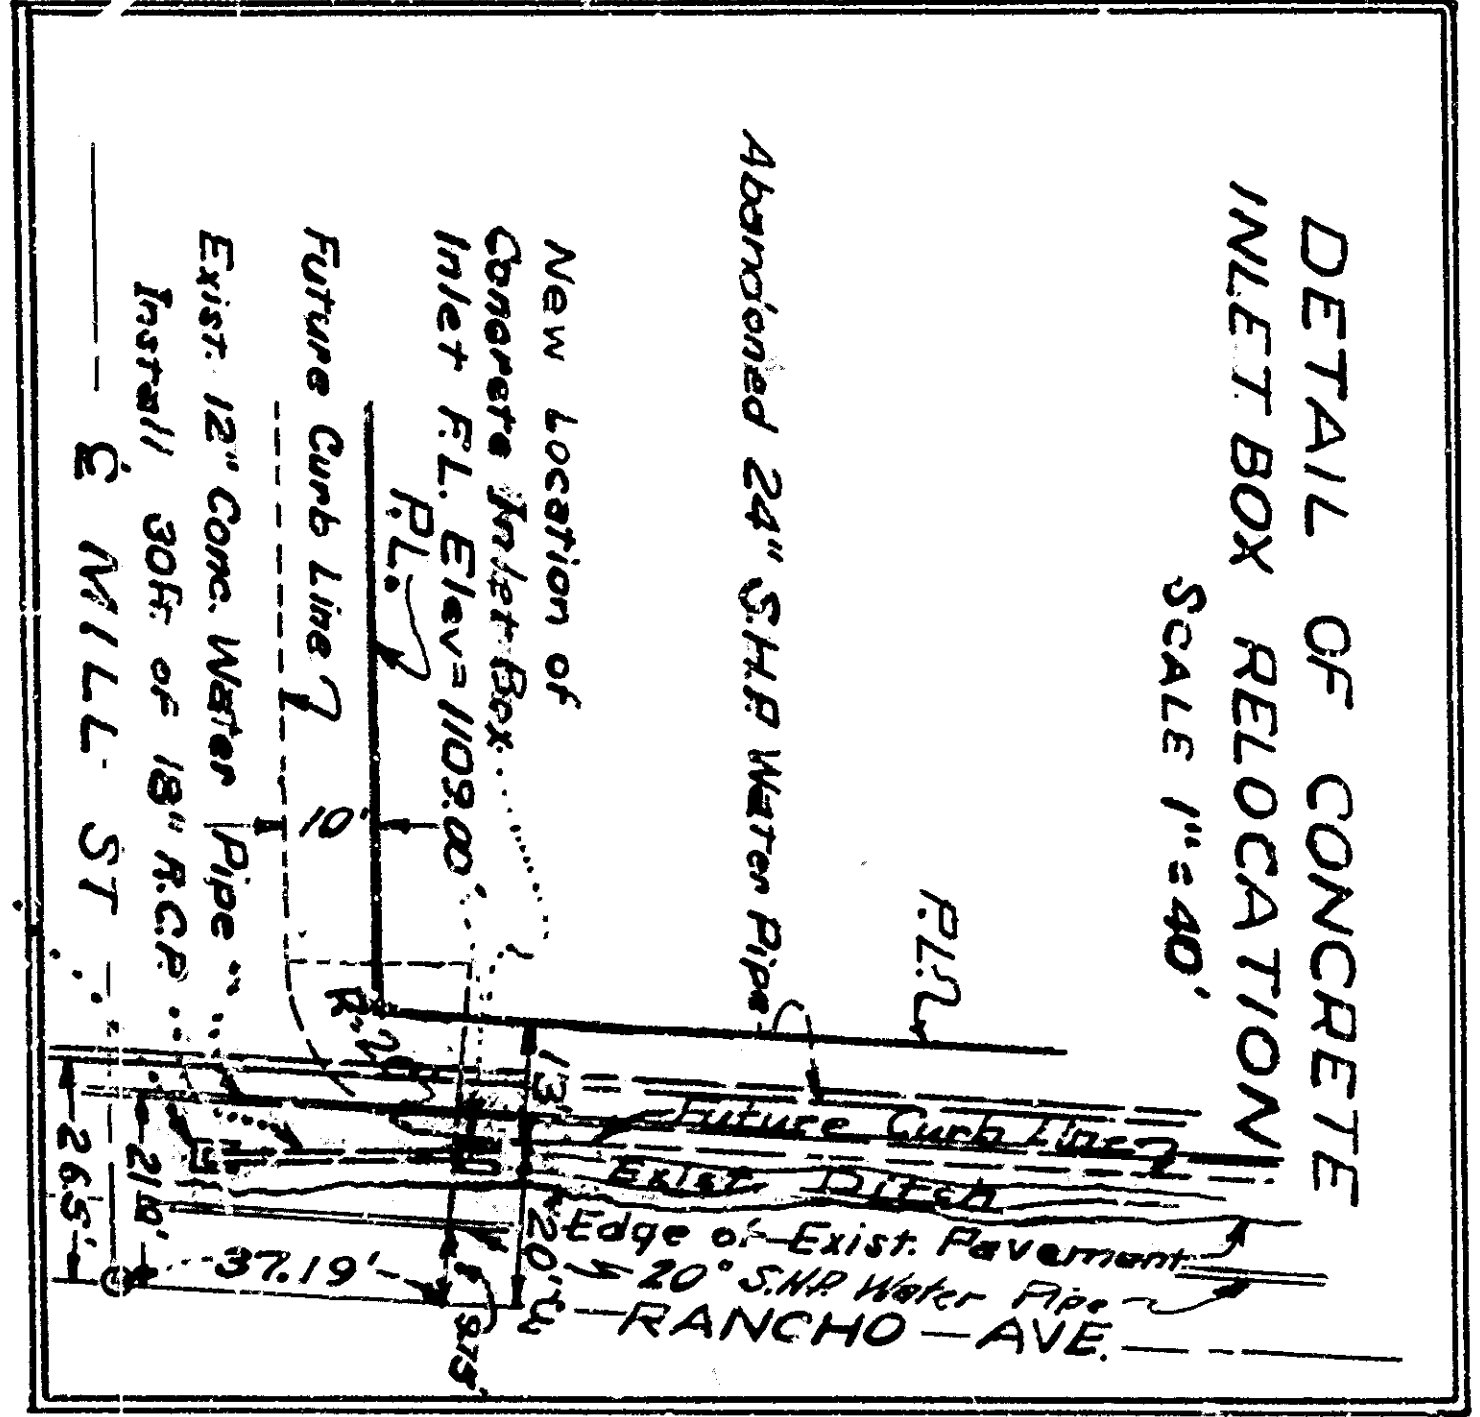 DETAIL OF CONCRETE
INLET BOX RELOCATION
SCALE 1"=40'
P.L.
Abandoned 24" S.H.P. Water Pipe
New Location of
Concrete Inlet Box
Inlet F.L. Elev=1109.00
P.L.
Future Curb Line
Exist. 12" Conc. Water Pipe
Install 30ft. of 18" R.C.P.
℄ MILL ST
10'
R=20'
13'
Future Curb Line
Exist. Ditch
Edge of Exist. Pavement
20" S.H.P. Water Pipe
℄ RANCHO AVE.
20'
9.75'
37.19'
26.5'